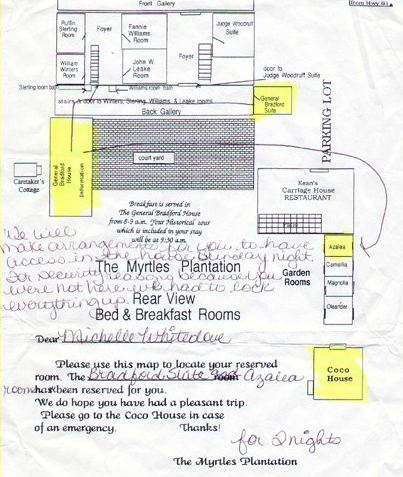 Front Gallery
from Hwy 61
Ruffin
Sterling
Room
Foyer
Fannie
Williams
Room
Judge Woodruff
Suite
William
Winters
Room
John W.
Leake
Room
Foyer
door to
Judge Woodruff Suite
Sterling room bath
Williams room bath
stairs & door to Winters, Sterling, Williams, & Leake rooms
General
Bradford
Suite
Back Gallery
PARKING LOT
General
Bradford
House
Information
court yard
Caretaker's
Cottage
Kean's
Carriage House
RESTAURANT
Breakfast is served in
The General Bradford House
from 8-9 a.m. Your Historical tour
which is included in your stay
will be at 9:30 a.m.
We will
make arrangements for you to have
access in the house Sunday night.
For security reasons because you
were not here we had to lock
everything up.
Azalea
Camellia
Magnolia
Oleander
Garden
Rooms
The Myrtles Plantation
Rear View
Bed & Breakfast Rooms
Dear Michelle Whitedove
Please use this map to locate your reserved
room. The Bradford Suite and room Azalea
room has been reserved for you.
We do hope you have had a pleasant trip.
Please go to the Coco House in case
of an emergency. Thanks!
Coco
House
for 2 nights
The Myrtles Plantation